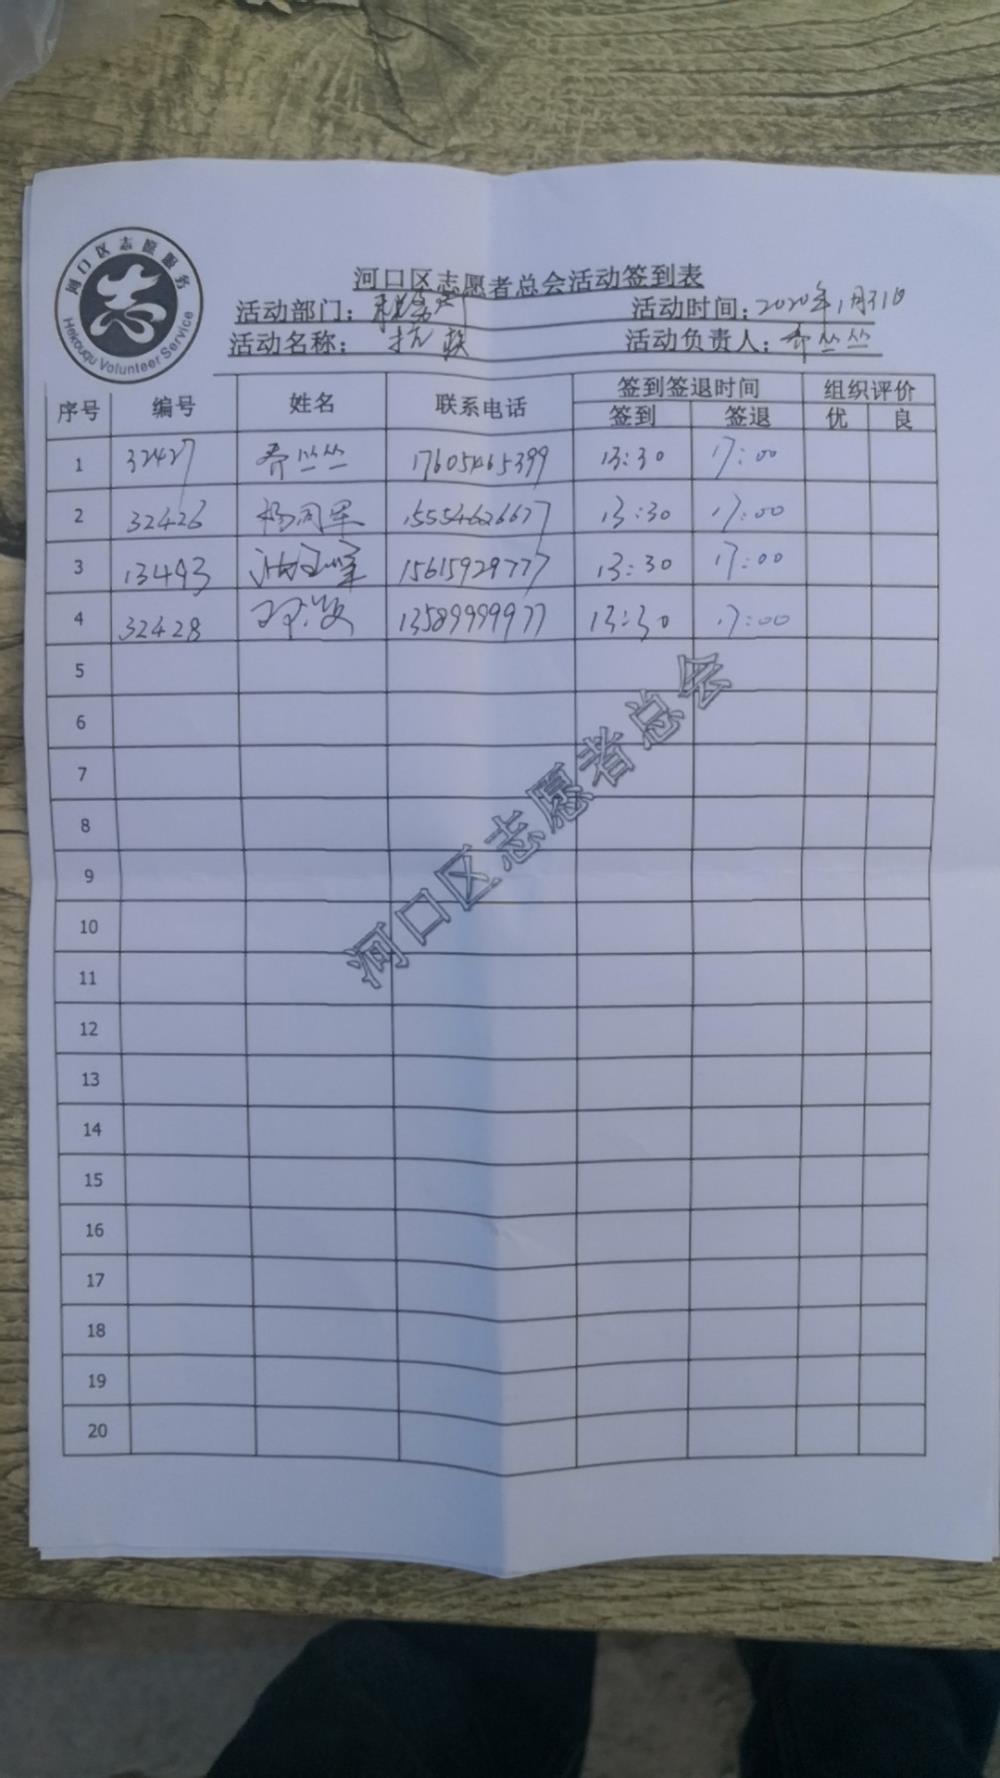 河口区志愿服务
志
Hekouqu Volunteer Service
河口区志愿者总会活动签到表
活动部门： 活动时间：2020年1月31日
活动名称：抗疫 活动负责人：乔丛丛
序号 编号 姓名 联系电话 签到签退时间 组织评价
签到 签退 优 良
1 32427 乔丛丛 17605465399 13:30 17:00
2 32426 杨同军 15554626677 13:30 17:00
3 13493 15615929777 13:30 17:00
4 32428 13589999977 13:30 17:00
5
6
7
8
9
10
11
12
13
14
15
16
17
18
19
20
河口区志愿者总会